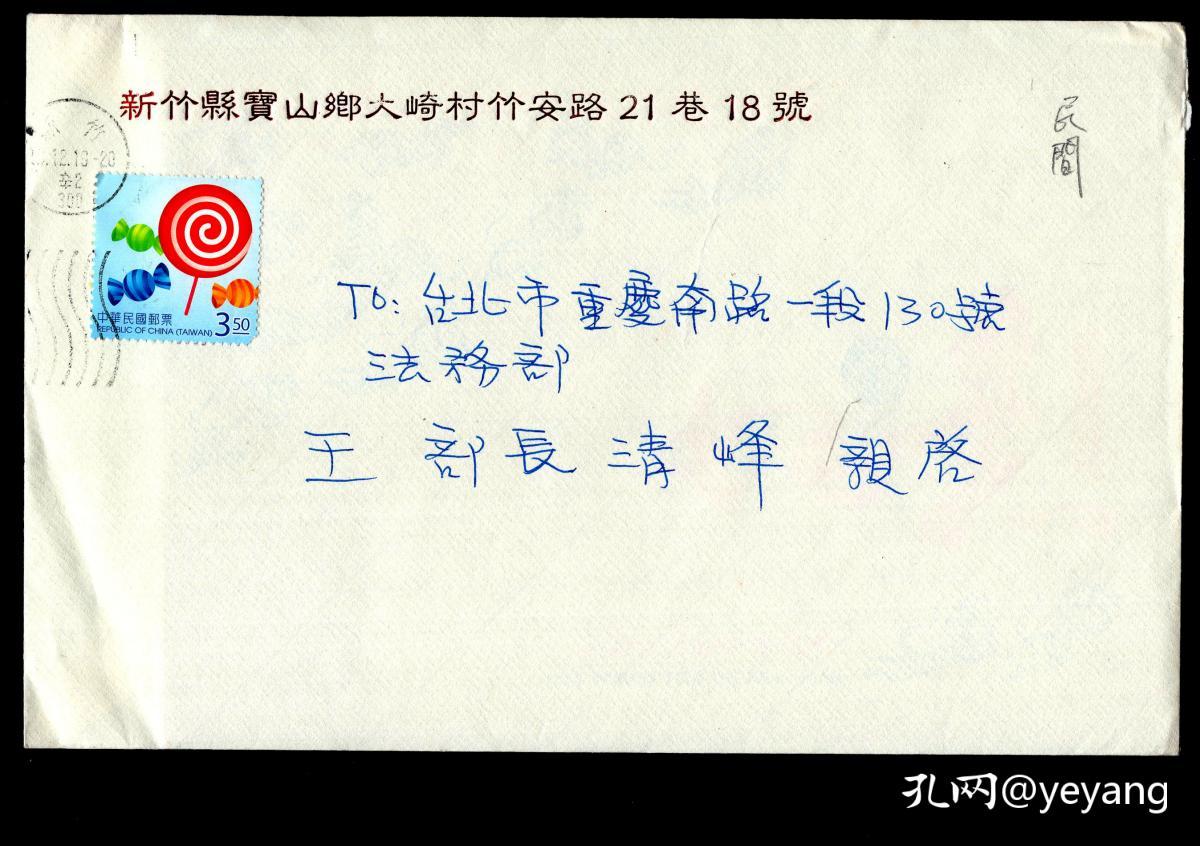 新竹縣寶山鄉大崎村竹安路21巷18號
民間
.12.18-20
300
中華民國郵票
REPUBLIC OF CHINA (TAIWAN)
3.50
To: 台北市重慶南路一段130號
法務部
王 部長 清 峰 親啓
孔网@yeyang